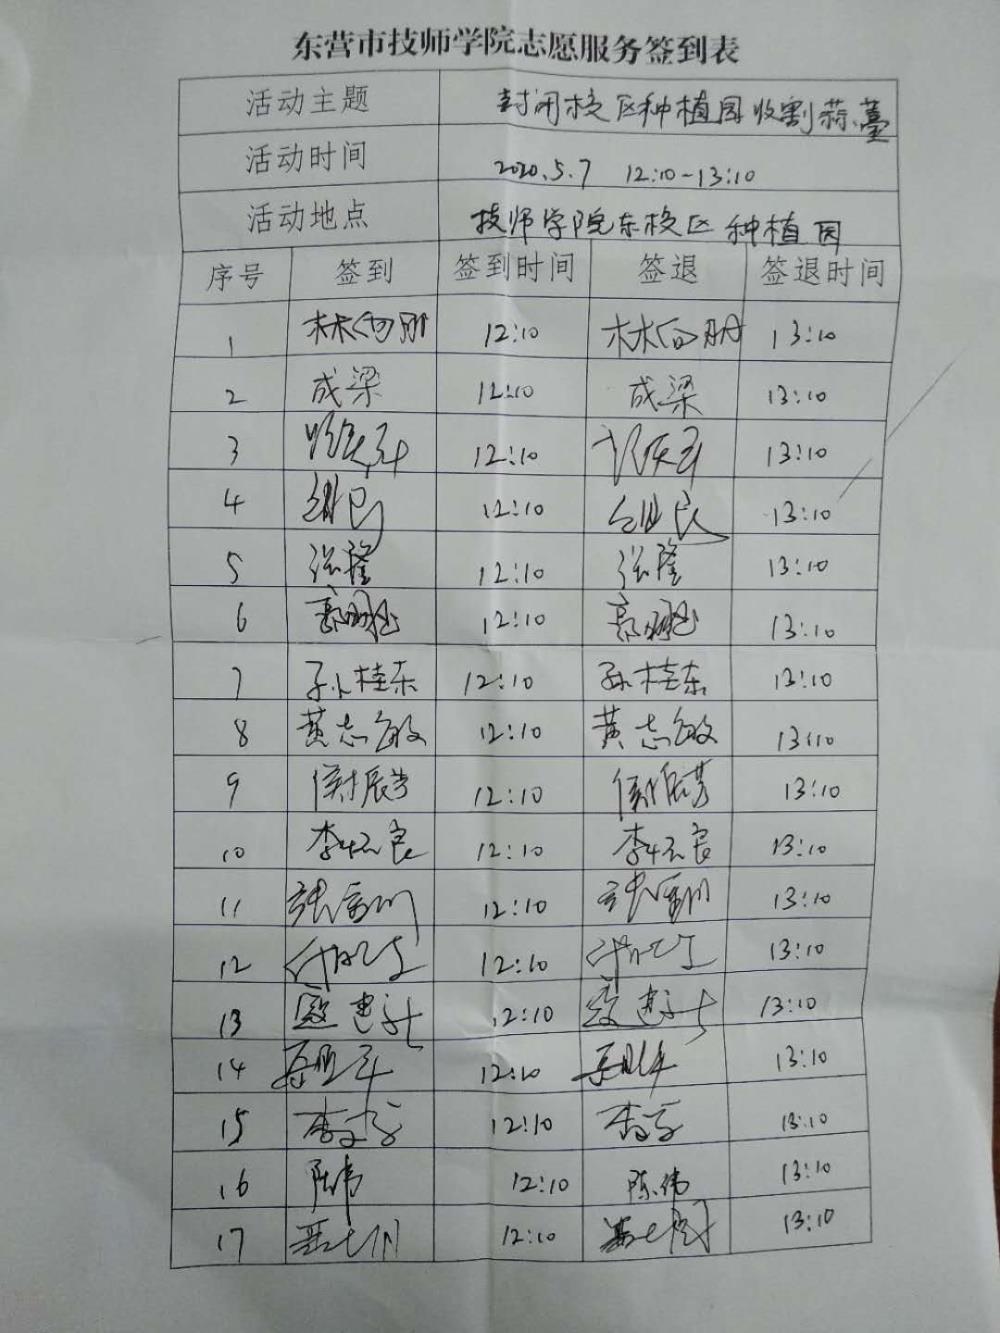 东营市技师学院志愿服务签到表
活动主题 封闭校区种植园收割蒜薹
活动时间 2020.5.7 12:10-13:10
活动地点 技师学院东校区种植园
序号 签到 签到时间 签退 签退时间
1 12:10 13:10
2 成梁 12:10 成梁 13:10
3 12:10 13:10
4 12:10 13:10
5 张隆 12:10 张隆 13:10
6 12:10 13:10
7 孙桂东 12:10 孙桂东 13:10
8 黄志敏 12:10 黄志敏 13:10
9 12:10 13:10
10 12:10 13:10
11 12:10 13:10
12 12:10 13:10
13 12:10 13:10
14 12:10 13:10
15 12:10 13:10
16 陈伟 12:10 陈伟 13:10
17 12:10 13:10